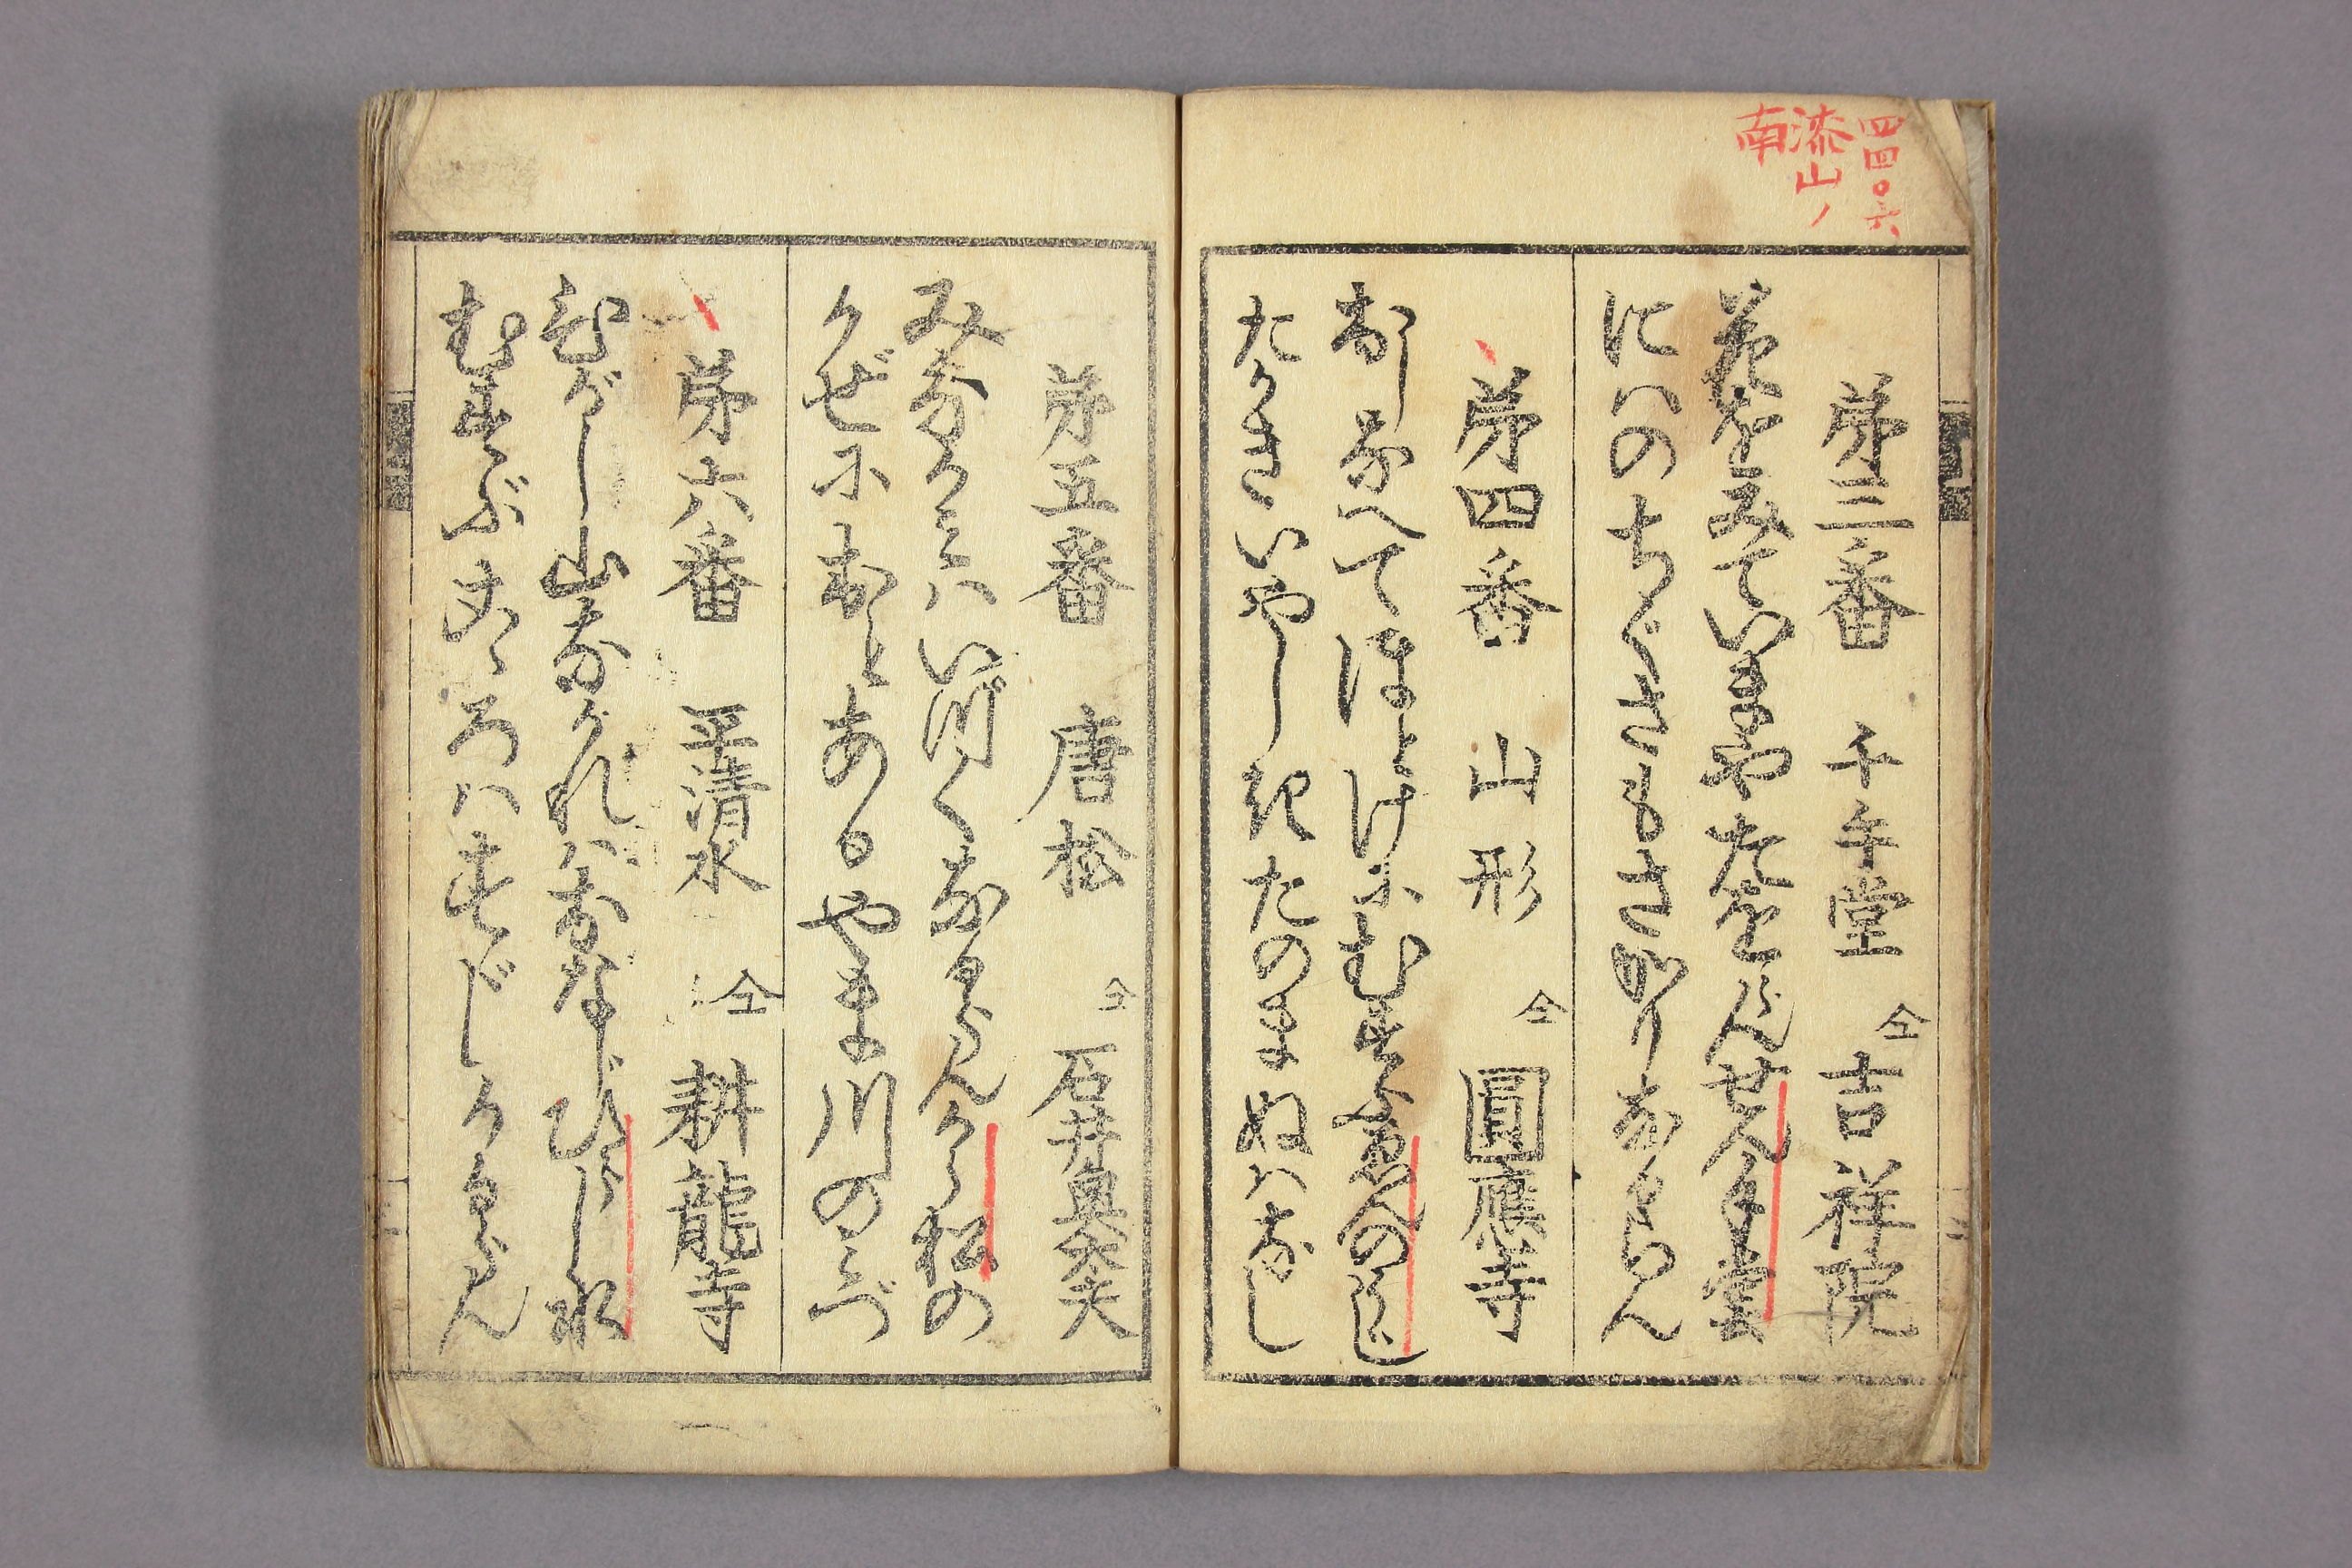 四四〇六
漆山ノ
南
第三番　千手堂　仝　吉祥院
花をみていまやたをらんせん手堂
にハのちぐさもさかりなるらん
第四番　山形　仝　圓應寺
おしなへてほとけにむすふゑんのてら
たかきいやしきたのまぬハなし
第五番　唐松　仝　石井奥太夫
みなかミハいづくなるらんから松の
かぜにおとあるやま川のミづ
第六番　平清水　仝　耕龍寺
ひがし山ながれハおなじひらし水
むすぶこゝろハすゞしかるらん